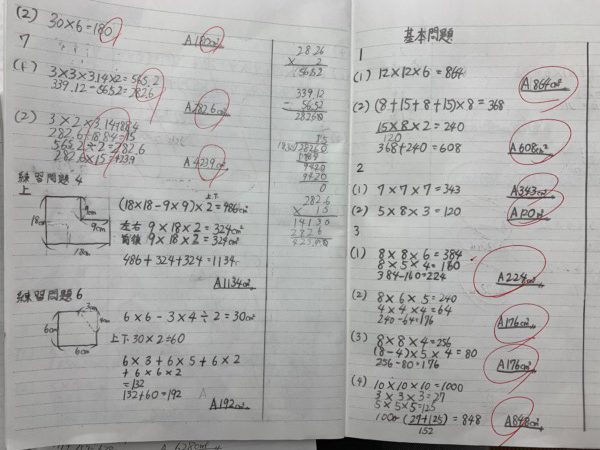 (2) 30×6=180
A180cm²
7
(1) 3×3×3.14×2=56.52
339.12-56.52=282.6
A282.6cm²
282.6÷18.84=15
56.52÷2=
282.6×15=4239
A4239cm³
28.26
× 2
56.52
339.12
- 56.52
282.60
15
9420
9420
0
282.6
× 15
14130
2826
練習問題4
上
18cm
9cm
9cm
18cm
(18×18-9×9)×2=486cm²
左右 9×18×2=324cm²
前後 9×18×2=324cm²
486+324+324=1134
A1134cm²
練習問題6
6cm
6cm
6×6-3×4÷2=30cm²
上下 30×2=60
6×3+6×5+6×2
+6×6×2
=132
132+60=192
A192cm²
基本問題
1
(1) 12×12×6=864
A864cm²
(2) (8+15+8+15)×8=368
15×8×2=240
120
368+240=608
A608cm²
2
(1) 7×7×7=343
A343cm³
(2) 5×8×3=120
A120cm³
3
(1) 8×8×6=384
8×5×4=160
384-160=224
A224cm³
(2) 8×6×5=240
4×4×4=64
240-64=176
A176cm³
(3) 8×8×4=256
(8-4)×5×4=80
256-80=176
A176cm³
(4) 10×10×10=1000
3×3×3=27
5×5×5=125
1000-(27+125)=848
152
A848cm³